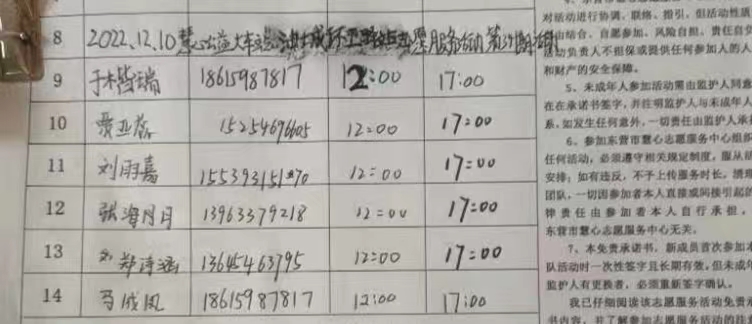 8 2022.12.10慧心公益大车站 服务活动第39期活动
9 于木皆瑞 18615987817 12:00 17:00
10 1525469605 12:00 17:00
11 刘雨嘉 15539315170 12:00 17:00
12 张海月 13963379218 12:00 17:00
13 郑诗涵 13645463795 12:00 17:00
14 马成凤 18615987817 12:00 17:00
对活动进行协调、联络、指引,但活动性质
由结合、自愿参加、风险自担、责任自负
动负责人不担保或提供任何参加人的人
和财产的安全保障。
5、未成年人参加活动需由监护人同意
在在承诺书签字,并注明监护人与未成年人
系,如发生任何意外,一切责任由监护人承担
6、参加东营市慧心志愿服务中心组织
任何活动,必须遵守相关规定制度,服从
安排;如有违反,不予上传服务时长,清理
团队,一切因参加者本人直接或间接引起的
律责任由参加者本人自行承担,
东营市慧心志愿服务中心无关。
7、本免责承诺书,新成员首次参加本
队活动时一次性签字且长期有效,但未成年
监护人有更换者,必须重新签字确认。
我已仔细阅读该志愿服务活动免责承
书内容,并了解参加志愿服务活动的注意